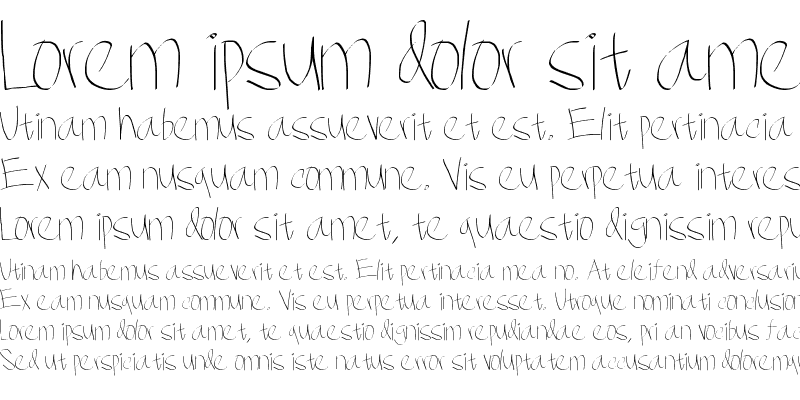 Lorem ipsum dolor sit ame
Utinam habemus assueverit et est. Elit pertinacia
Ex eam nusquam commune. Vis eu perpetua interes
Lorem ipsum dolor sit amet, te quaestio dignissim repu
Utinam habemus assueverit et est. Elit pertinacia mea no. At eleifend adversariu
Ex eam nusquam commune. Vis eu perpetua interesset. Utroque nominati conclusion
Lorem ipsum dolor sit amet, te quaestio dignissim repudiandae eos, pri an vocibus fac
Sed ut perspiciatis unde omnis iste natus error sit voluptatem accusantium doloremqu